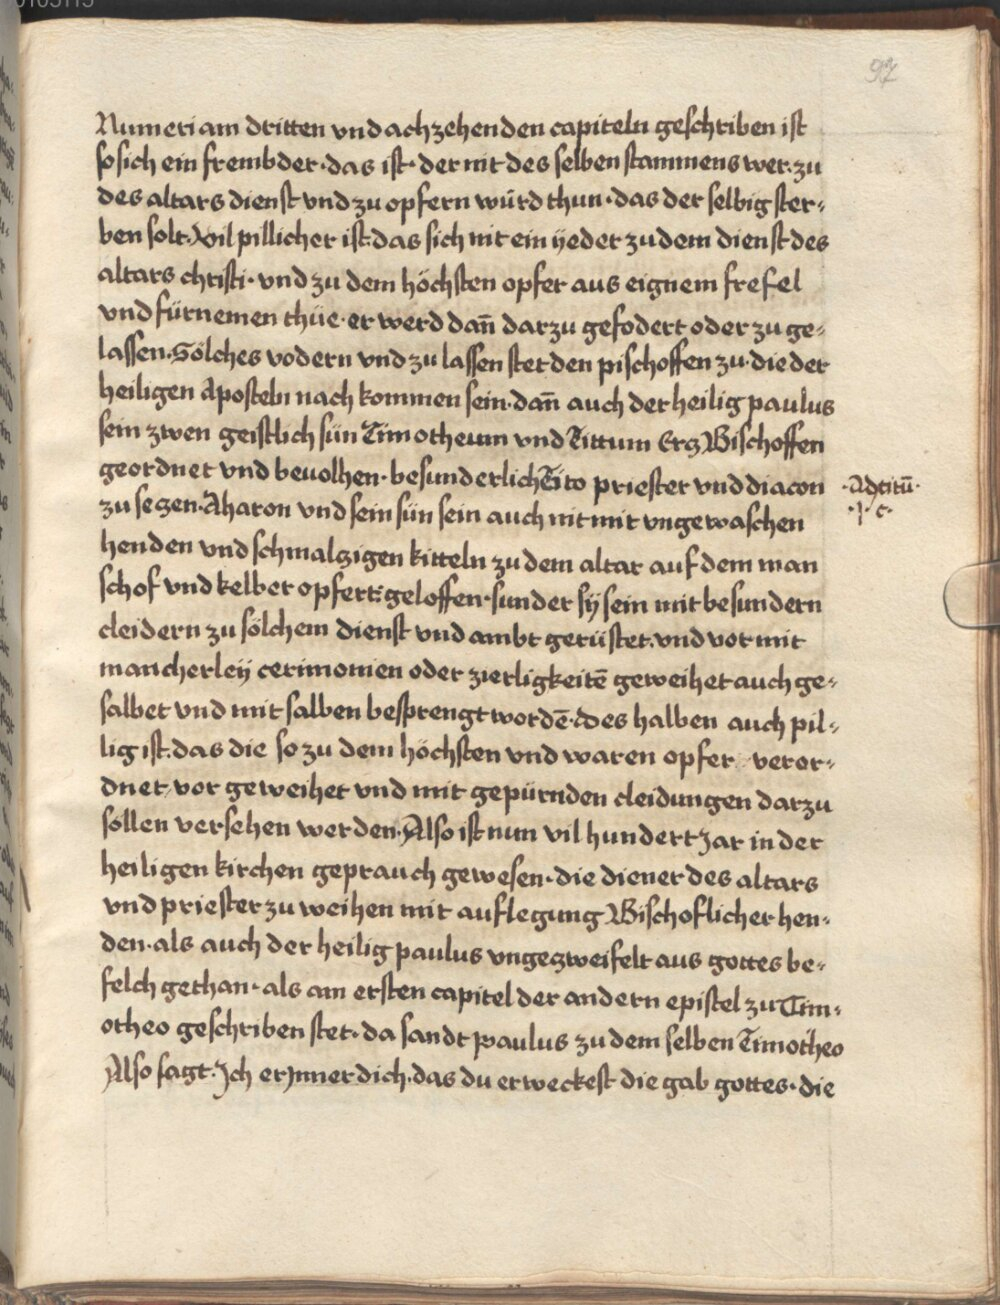 97
Numeri am dritten vnd achzehenden capiteln geschriben ist
so sich ein frembder · das ist · der nit des selben stammens wer · zu
des altars dienst vnd zu opfern würd thun · das der selbig ster⸗
ben solt · Vil pillicher ist · das sich nit ein yeder zu dem dienst des
altars christi · vnd zu dem höchsten opfer aus eignem frefel
vnd fürnemen thüe · er werd dañ darzu gefodert oder zu ge⸗
lassen · Sölches vodern vnd zu lassen stet den pischoffen zu · die der
heiligen Aposteln nach kommen sein · dañ auch der heilig paulus
sein zwen geistlich sün Timotheum vnd Tittum Erzbischoffen
geordnet vnd beuolhen · besunderlich Tito priester vnd diacon
· Ad titū ·
zu sezen · Aharon vnd sein sün sein auch nit mit vngewaschen
· j · c ·
henden vnd schmalzigen kitteln zu dem altar auf dem man
schof vnd kelber opfert · geloffen · sunder sy sein mit besundern
cleidern zu sölchem dienst vnd ambt gerüstet · vnd vor mit
mancherley cerimonien oder zierligkeitē geweihet auch ge⸗
salbet vnd mit salben besprengt wordē · des halben auch pil⸗
lig ist · das die so zu dem höchsten vnd waren opfer veror⸗
dnet vor geweihet vnd mit gepürnden cleidungen darzu
sollen versehen werden · Also ist nun vil hundert Jar in der
heiligen kirchen geprauch gewesen · die diener des altars
vnd priester zu weihen mit auflegung Bischoflicher hen⸗
den · als auch der heilig paulus vngezweifelt aus gottes be⸗
felch gethan · als am ersten capitel der andern epistel zu Tim⸗
otheo geschriben stet · da sandt paulus zu dem selben Timotheo
Also sagt · Ich erJnner dich · das du erweckest die gab gottes · die